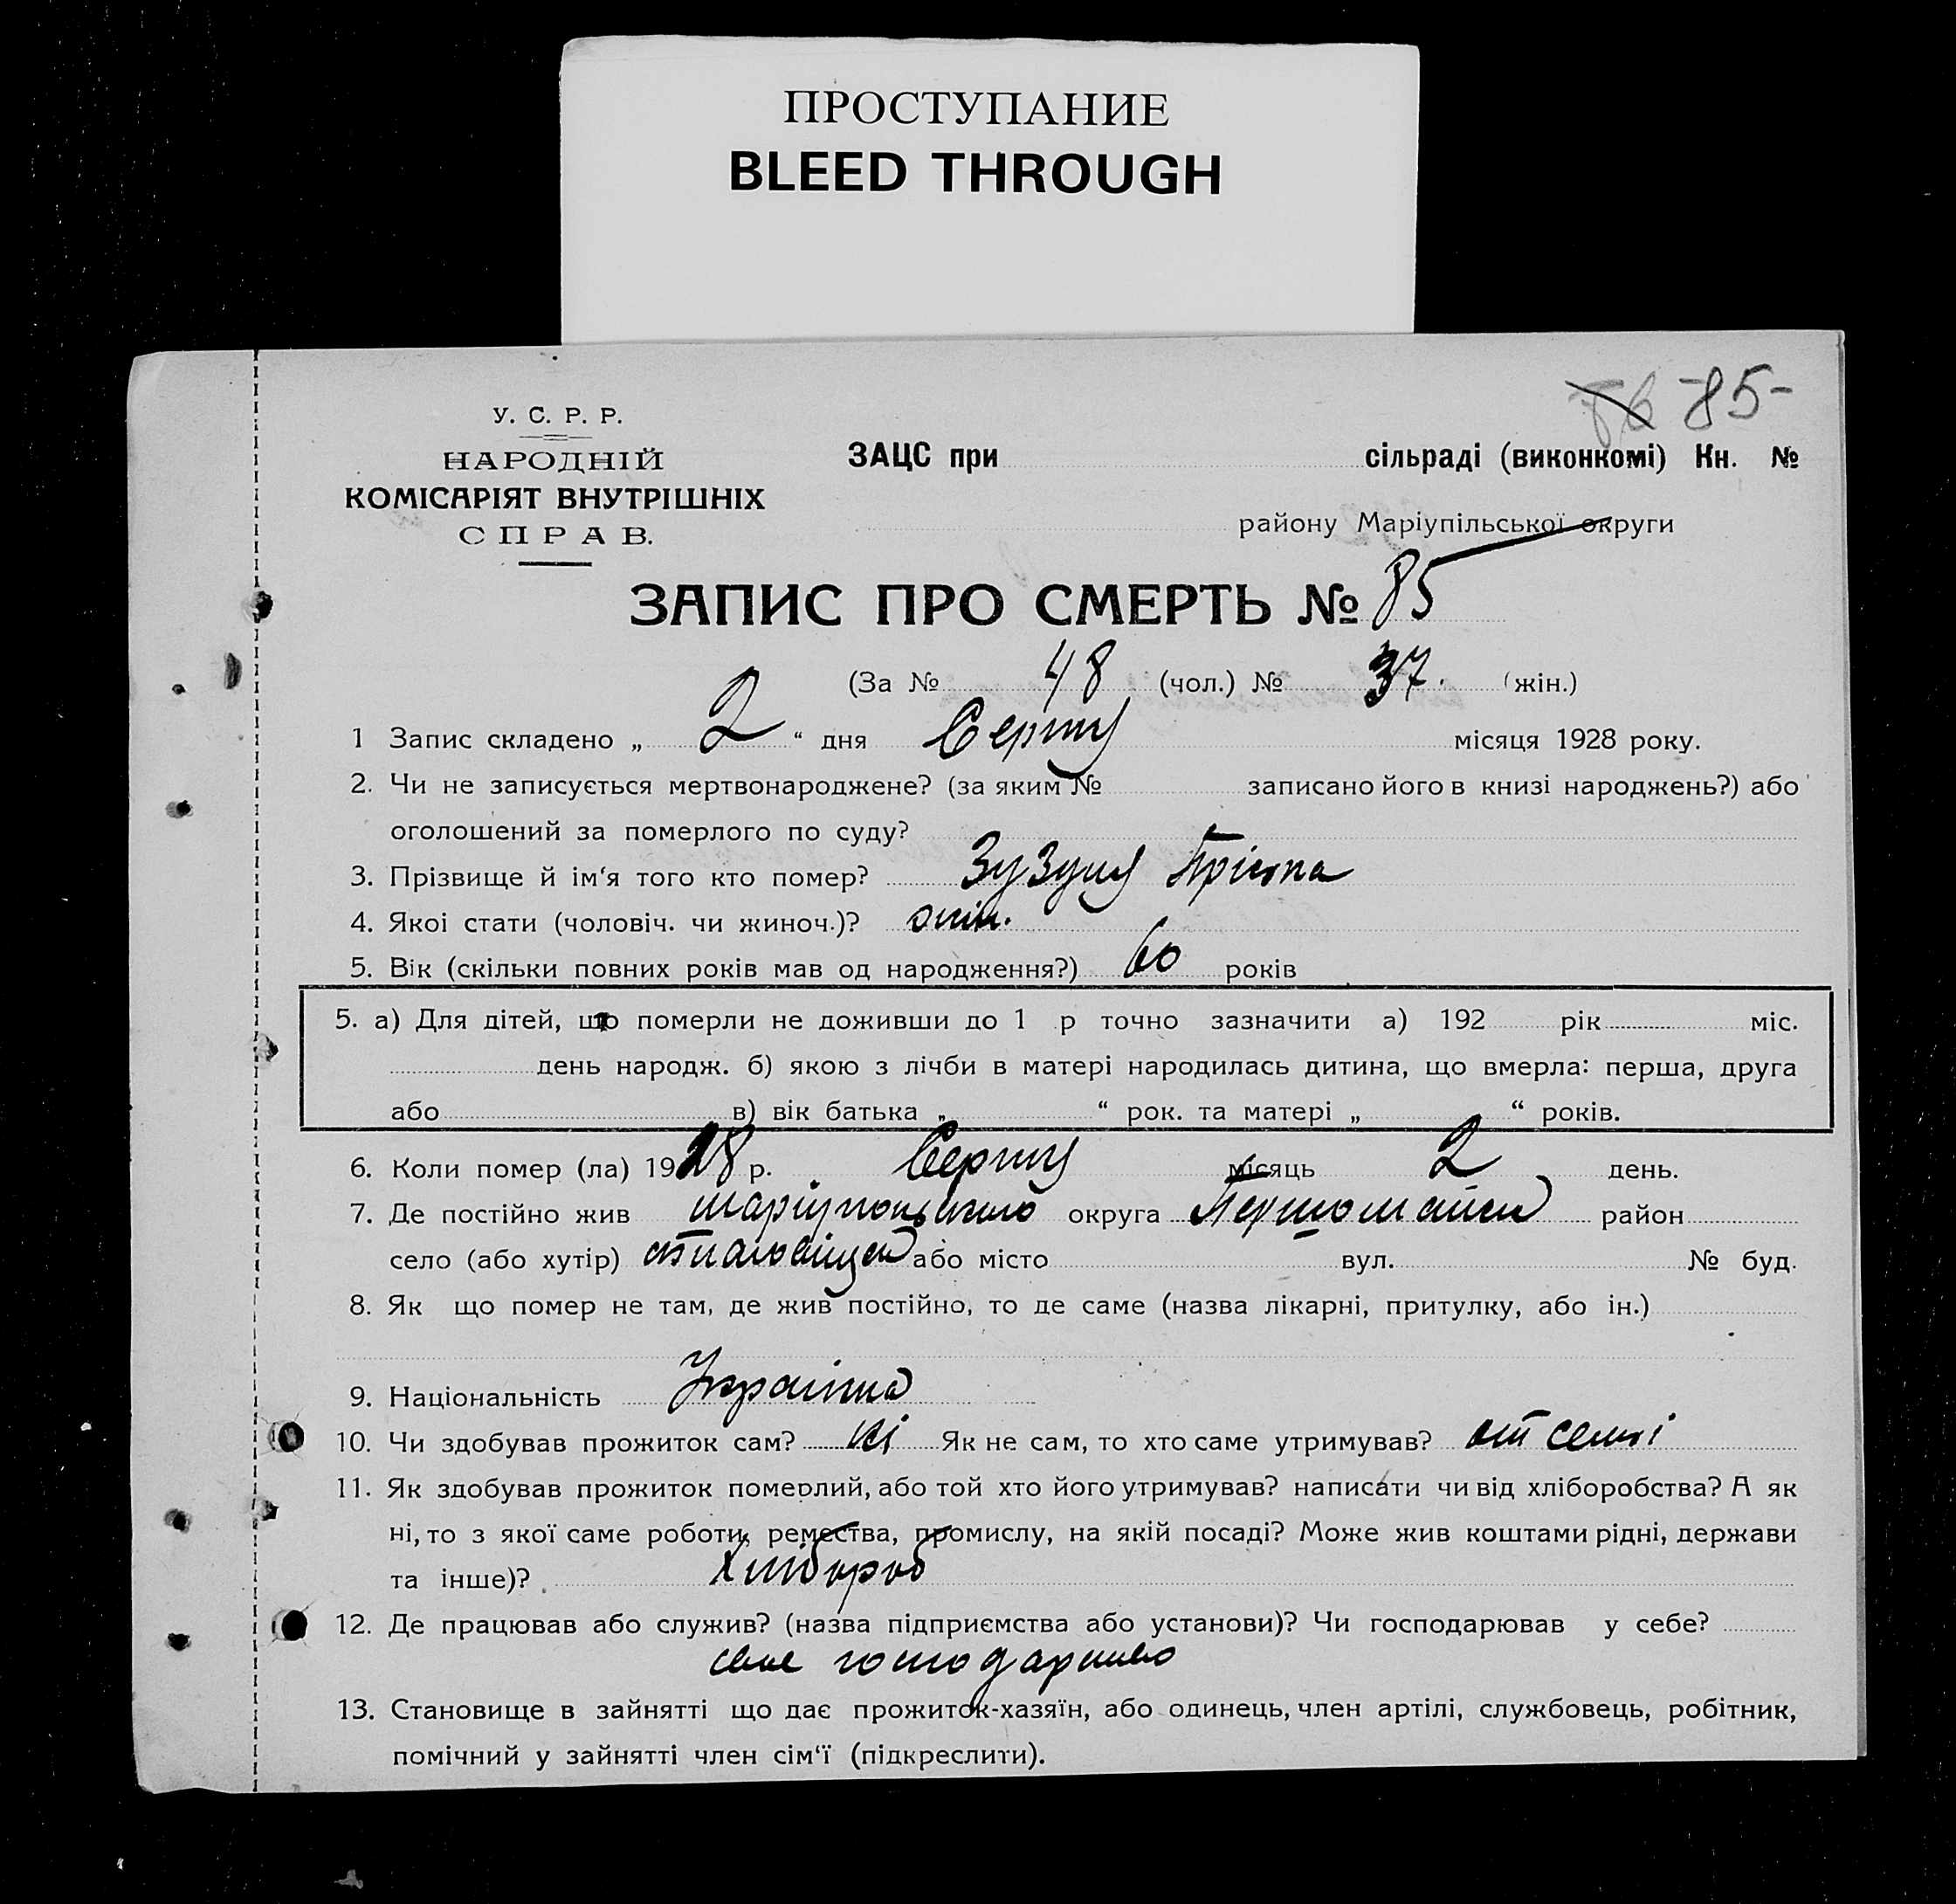 ПРОСТУПАНИЕ
BLEED THROUGH
86 85-
У. С. Р. Р.
НАРОДНІЙ
КОМІСАРІЯТ ВНУТРІШНІХ
СПРАВ.
ЗАЦС при сільраді (виконкомі) Кн. №
району Маріупільської округи
ЗАПИС ПРО СМЕРТЬ № 85
(За № 48 (чол.) № 37. (жін.)
1 Запис складено „ 2 “ дня Серпня місяця 1928 року.
2. Чи не записується мертвонароджене? (за яким № записано його в книзі народжень?) або
оголошений за померлого по суду?
3. Прізвище й ім‘я того кто помер? Зузуля
4. Якоі стати (чоловіч. чи жиноч.)? жін.
5. Вік (скільки повних років мав од народження?) 60 років
5. а) Для дітей, що померли не доживши до 1 р точно зазначити а) 192 рік міс.
день народж. б) якою з лічби в матері народилась дитина, що вмерла: перша, друга
або в) вік батька „ “ рок. та матері „ “ років.
6. Коли помер (ла) 1928 р. Серпня місяць 2 день.
7. Де постійно жив округа район
село (або хутір) або місто вул. № буд.
8. Як що помер не там, де жив постійно, то де саме (назва лікарні, притулку, або ін.)
9. Національність
10. Чи здобував прожиток сам? ні Як не сам, то хто саме утримував? от семі
11. Як здобував прожиток померлий, або той хто його утримував? написати чи від хліборобства? А як
ні, то з якої саме роботи, ремества, промислу, на якій посаді? Може жив коштами рідні, держави
та інше)? Хлібороб
12. Де працював або служив? (назва підприємства або установи)? Чи господарював у себе?
своє господарство
13. Становище в зайнятті що дає прожиток-хазяїн, або одинець, член артілі, службовець, робітник,
помічний у зайнятті член сім‘ї (підкреслити).